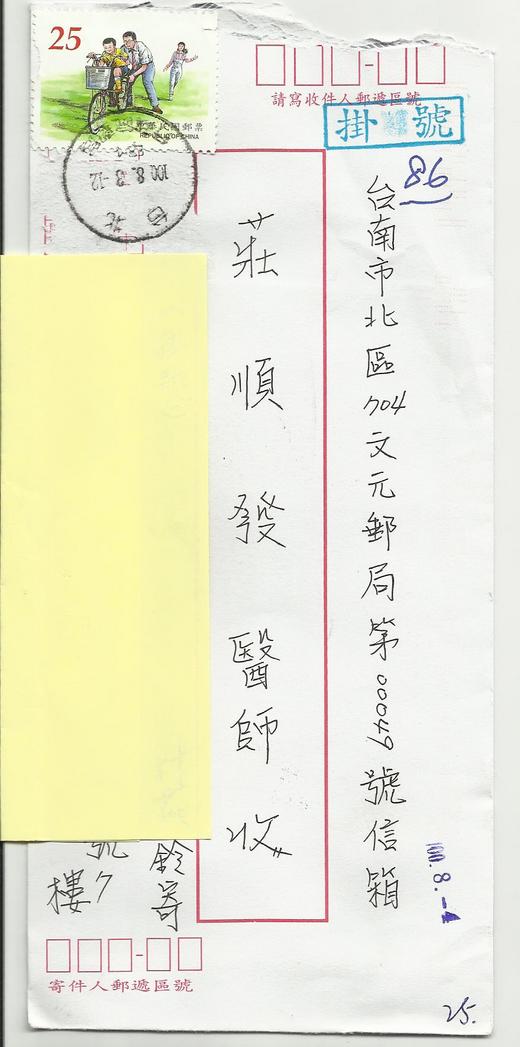 25
中華民國郵票
REPUBLIC OF CHINA
100.8.3-12
台北
請寫收件人郵遞區號
掛號
86
台南市北區704文元郵局第00049號信箱
莊順發醫師收
鈴寄
號7
樓
100.8.-4
寄件人郵遞區號
25.